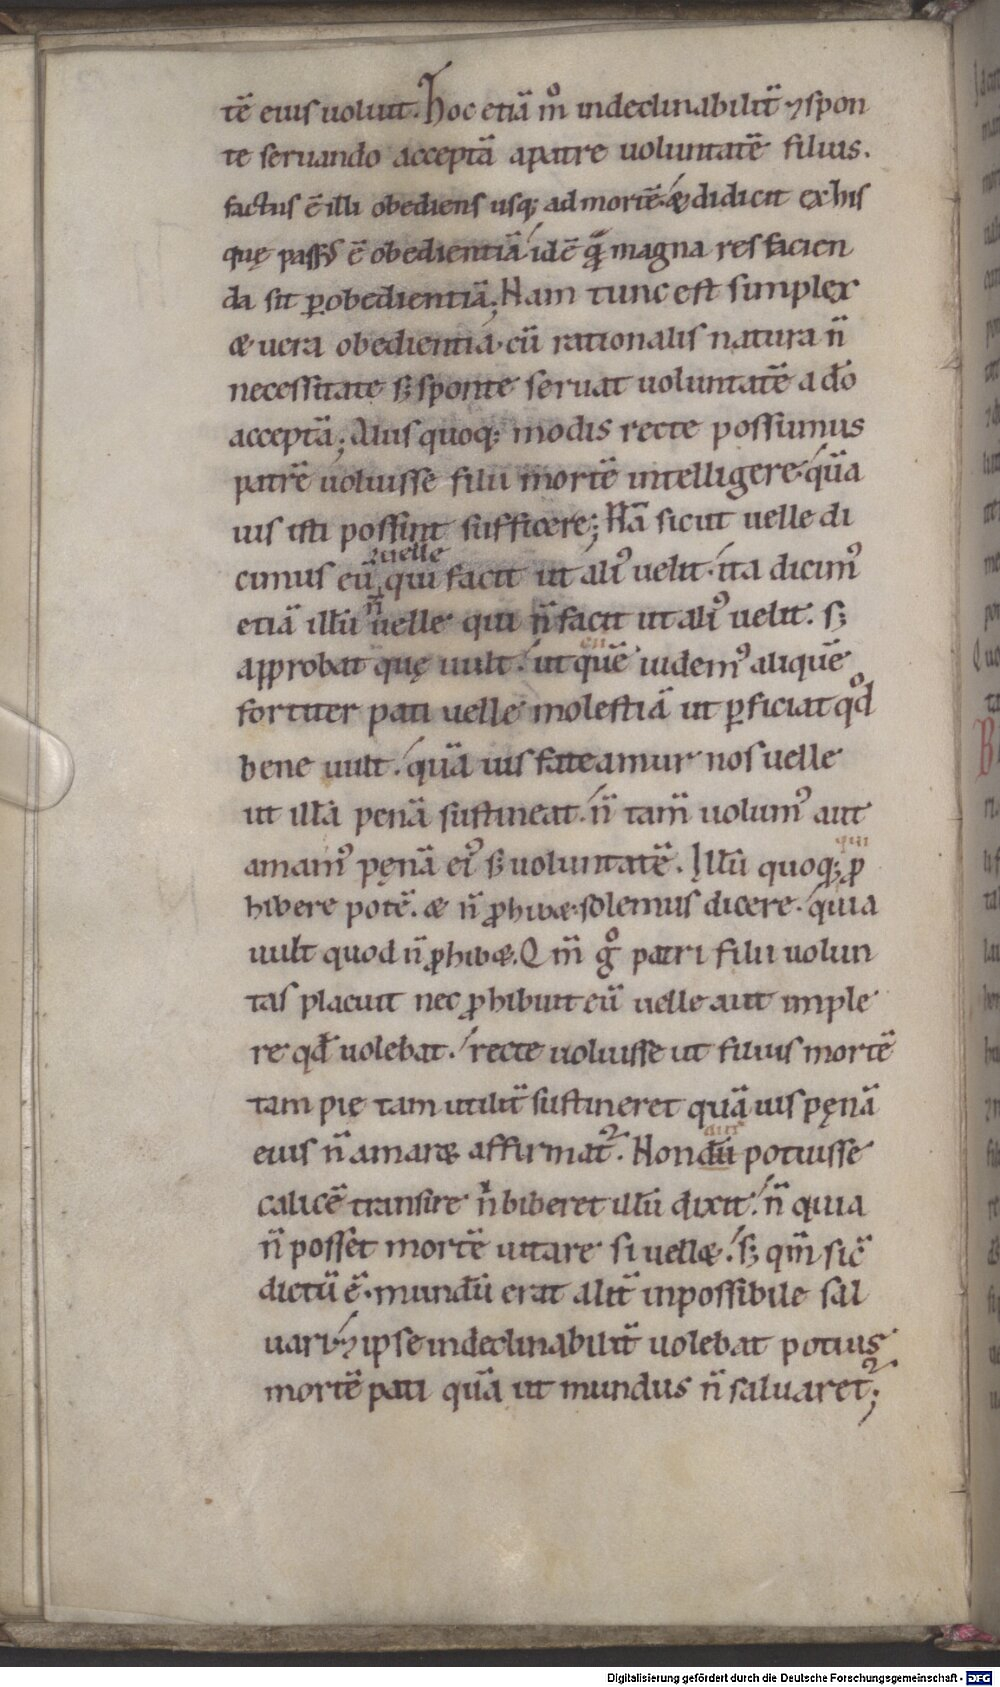 tē eius uoluit. Hoc etiā m̊ indeclinabilit̄ ⁊ spon
te seruando acceptā a patre uoluntatē filius.
factus ē illi obediens usq; ad mortē. & didicit ex his
quę passus ē obedientiā. id ē quā magna res facien
da sit ꝑ obedientiā; Nam tunc est simplex
& uera obedientia. cū rationalis natura n̄
necessitate sꝫ sponte seruat uoluntatē a dō
acceptā; Aliis quoq; modis recte possumus
patrē uoluisse filii mortē intelligere. quā
uis isti possint sufficere; Nā sicut uelle di
⁊ uelle
cimus eū qui facit ut aliꝰ uelit. ita dicimꝰ
n̄
etiā illū uelle qui n̄ facit ut aliꝰ uelit. sꝫ
approbat quę uult. ut quē uidemꝰ aliquē
fortiter pati uelle molestiā ut ꝑficiat qd̊
bene uult. quā uis fateamur nos uelle
ut illā penā sustineat. n̄ tam̄ uolumꝰ aut
qui
amamꝰ pęnā eiꝰ sꝫ uoluntatē. Illū quoq; ꝓ
hibere potē. & n̄ ꝓhib&. solemus dicere. quia
uult quod n̄ ꝓhib&. Qm̄ g̊ patri filii uolun
tas placuit nec ꝓhibuit eū uelle aut imple
re qđ uolebat. recte uoluisse ut filius mortē
tam pie tam utilit̄ sustineret quā uis pęnā
aut
eius n̄ amar& affirmat᷑. Non dū potuisse
calicē transire n̍ biberet illū dixit. n̄ quia
n̄ posset mortē uitare si uell&. sꝫ qm̄ sic̄
dictū ē. mundū erat alit̄ inpossibile sal
uari. ⁊ ipse indeclinabilit̄ uolebat potius
mortē pati quā ut mundus n̄ saluaret᷑;
Digitalisierung gefördert durch die Deutsche Forschungsgemeinschaft - DFG